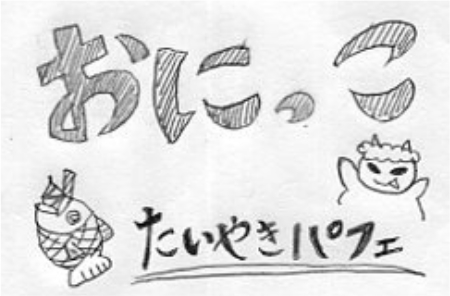 おにっこ
たいやきパフェ